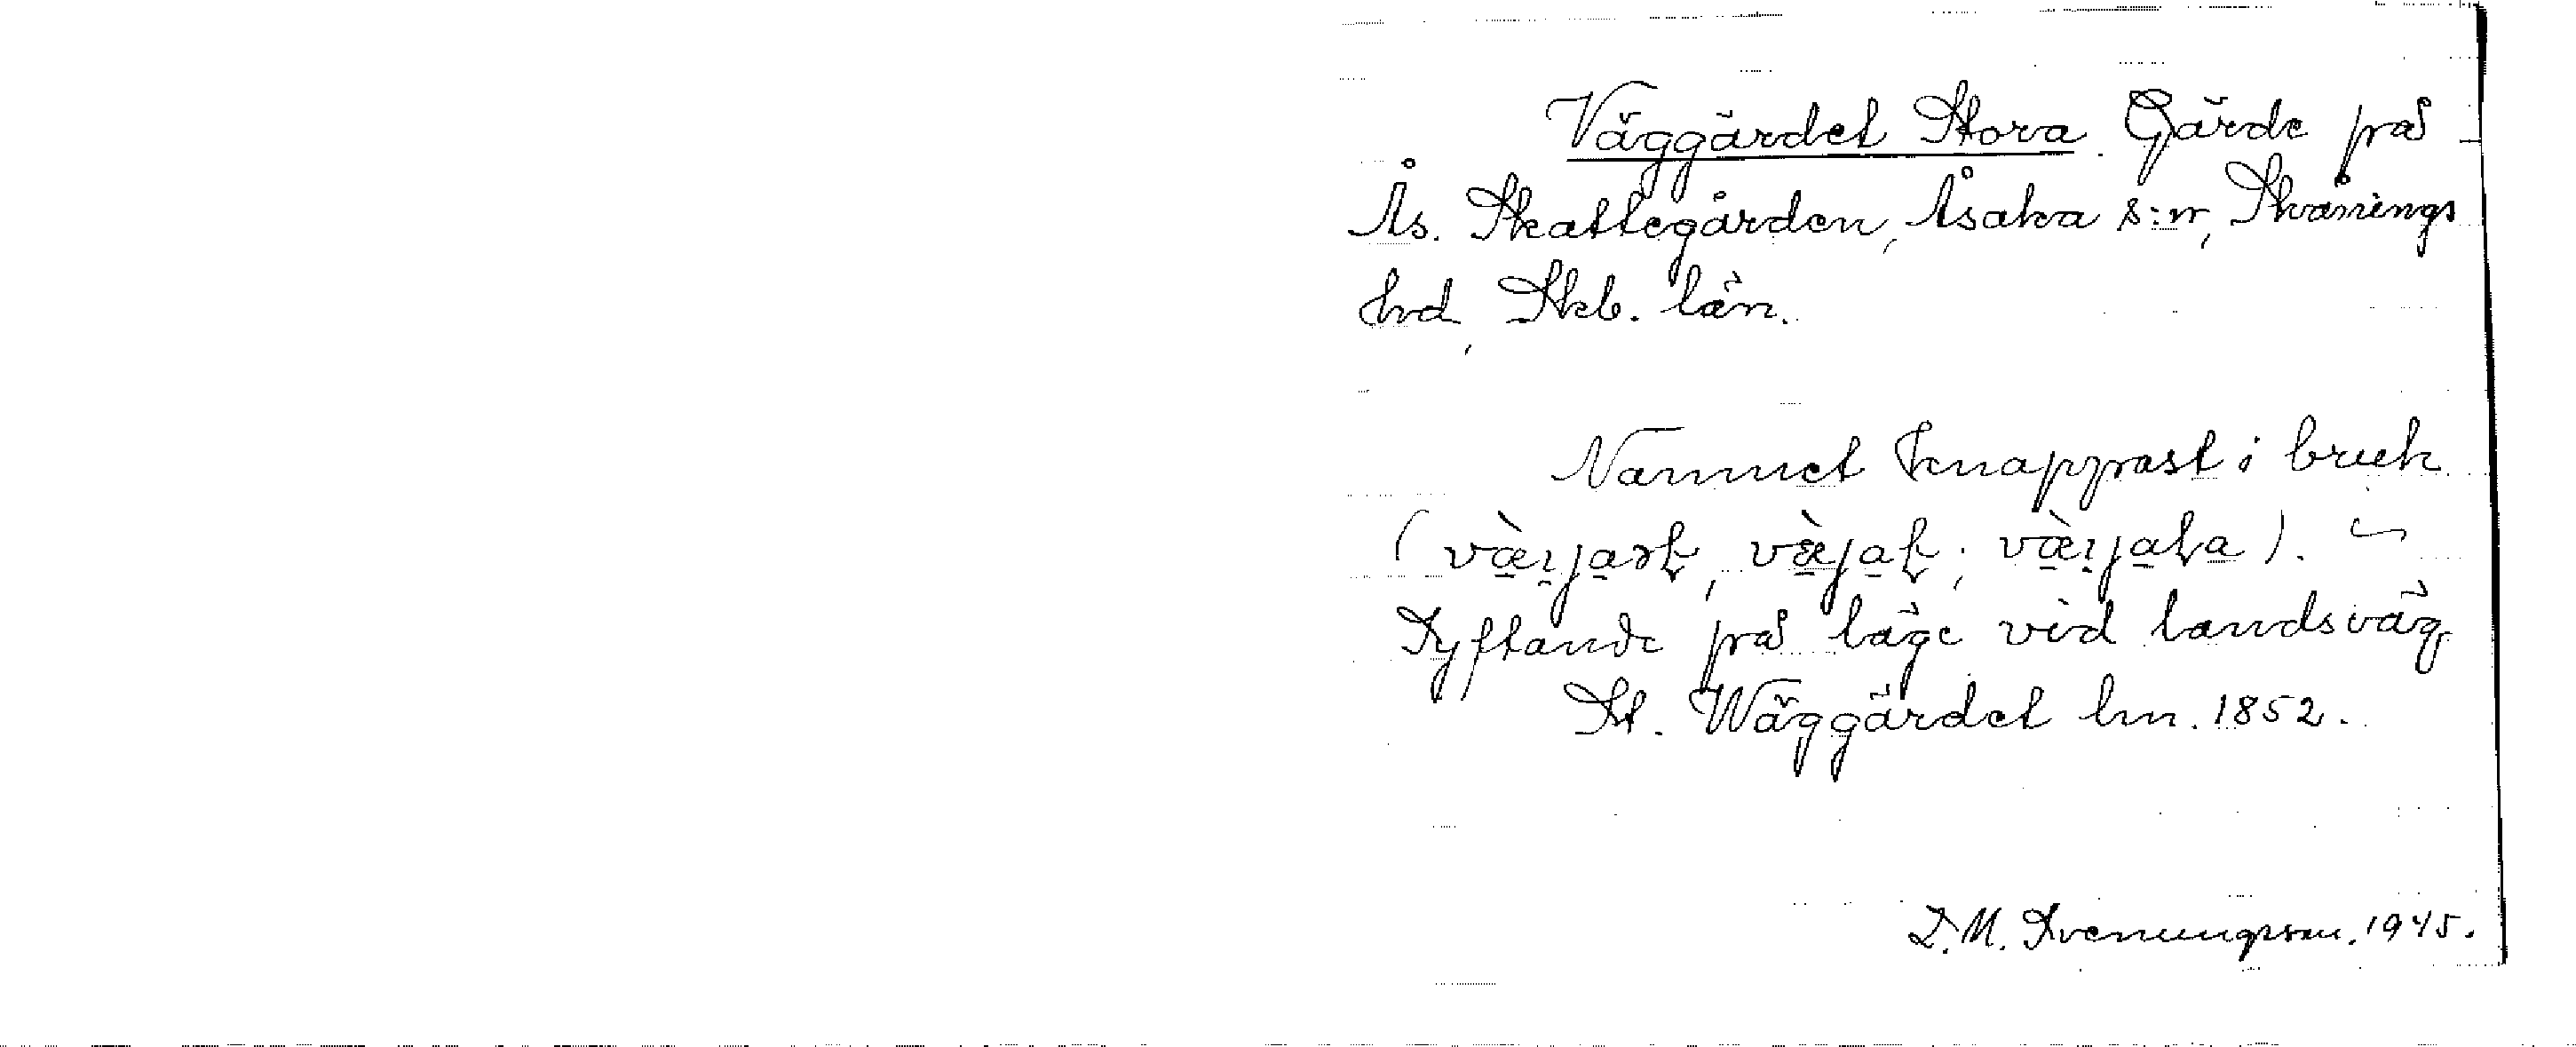 Väggärdet Stora. Gärde på
Ås. Skattegården, Åsaka s:n, Skånings
hrd, Skb. län.
Namnet knappast i bruk
Syftande på läge vid landsväg.
St. Wäggärdet hm. 1852.
D. M. Svenungsson. 1945.